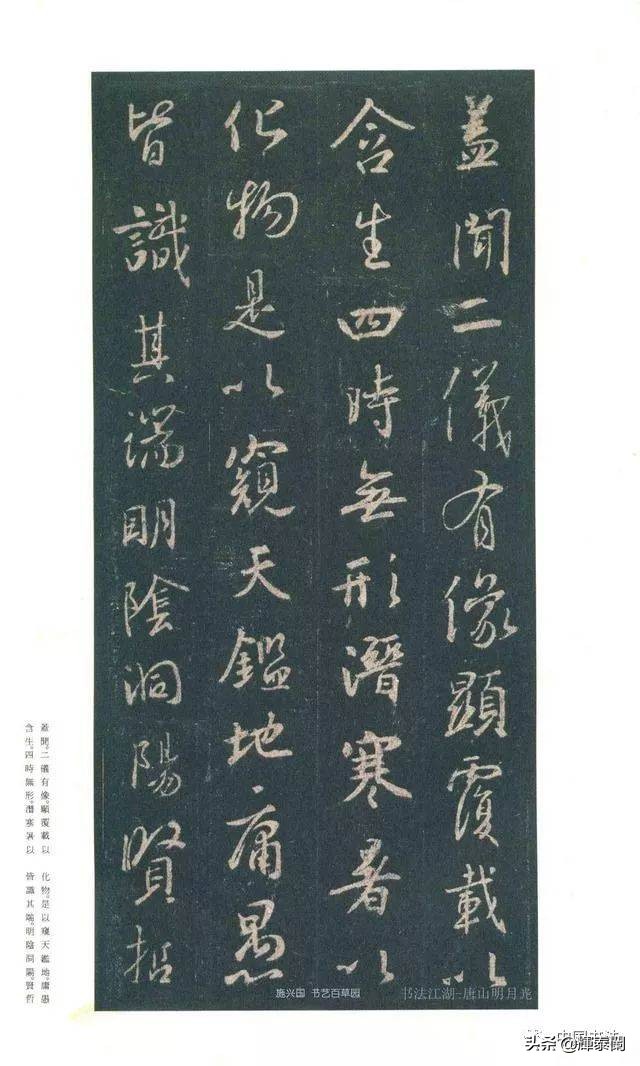 蓋聞二儀有像顯覆載以
含生四時無形潛寒暑以
化物是以窺天鑑地庸愚
皆識其端明陰洞陽賢哲
蓋聞。二儀有像。顯覆載以
含生。四時無形。潛寒暑以
化物。是以窺天鑑地。庸愚
皆識其端。明陰洞陽。賢哲
施兴国 书艺百草园
书法江湖-唐山明月光
中国书法
头条@輝泰閣